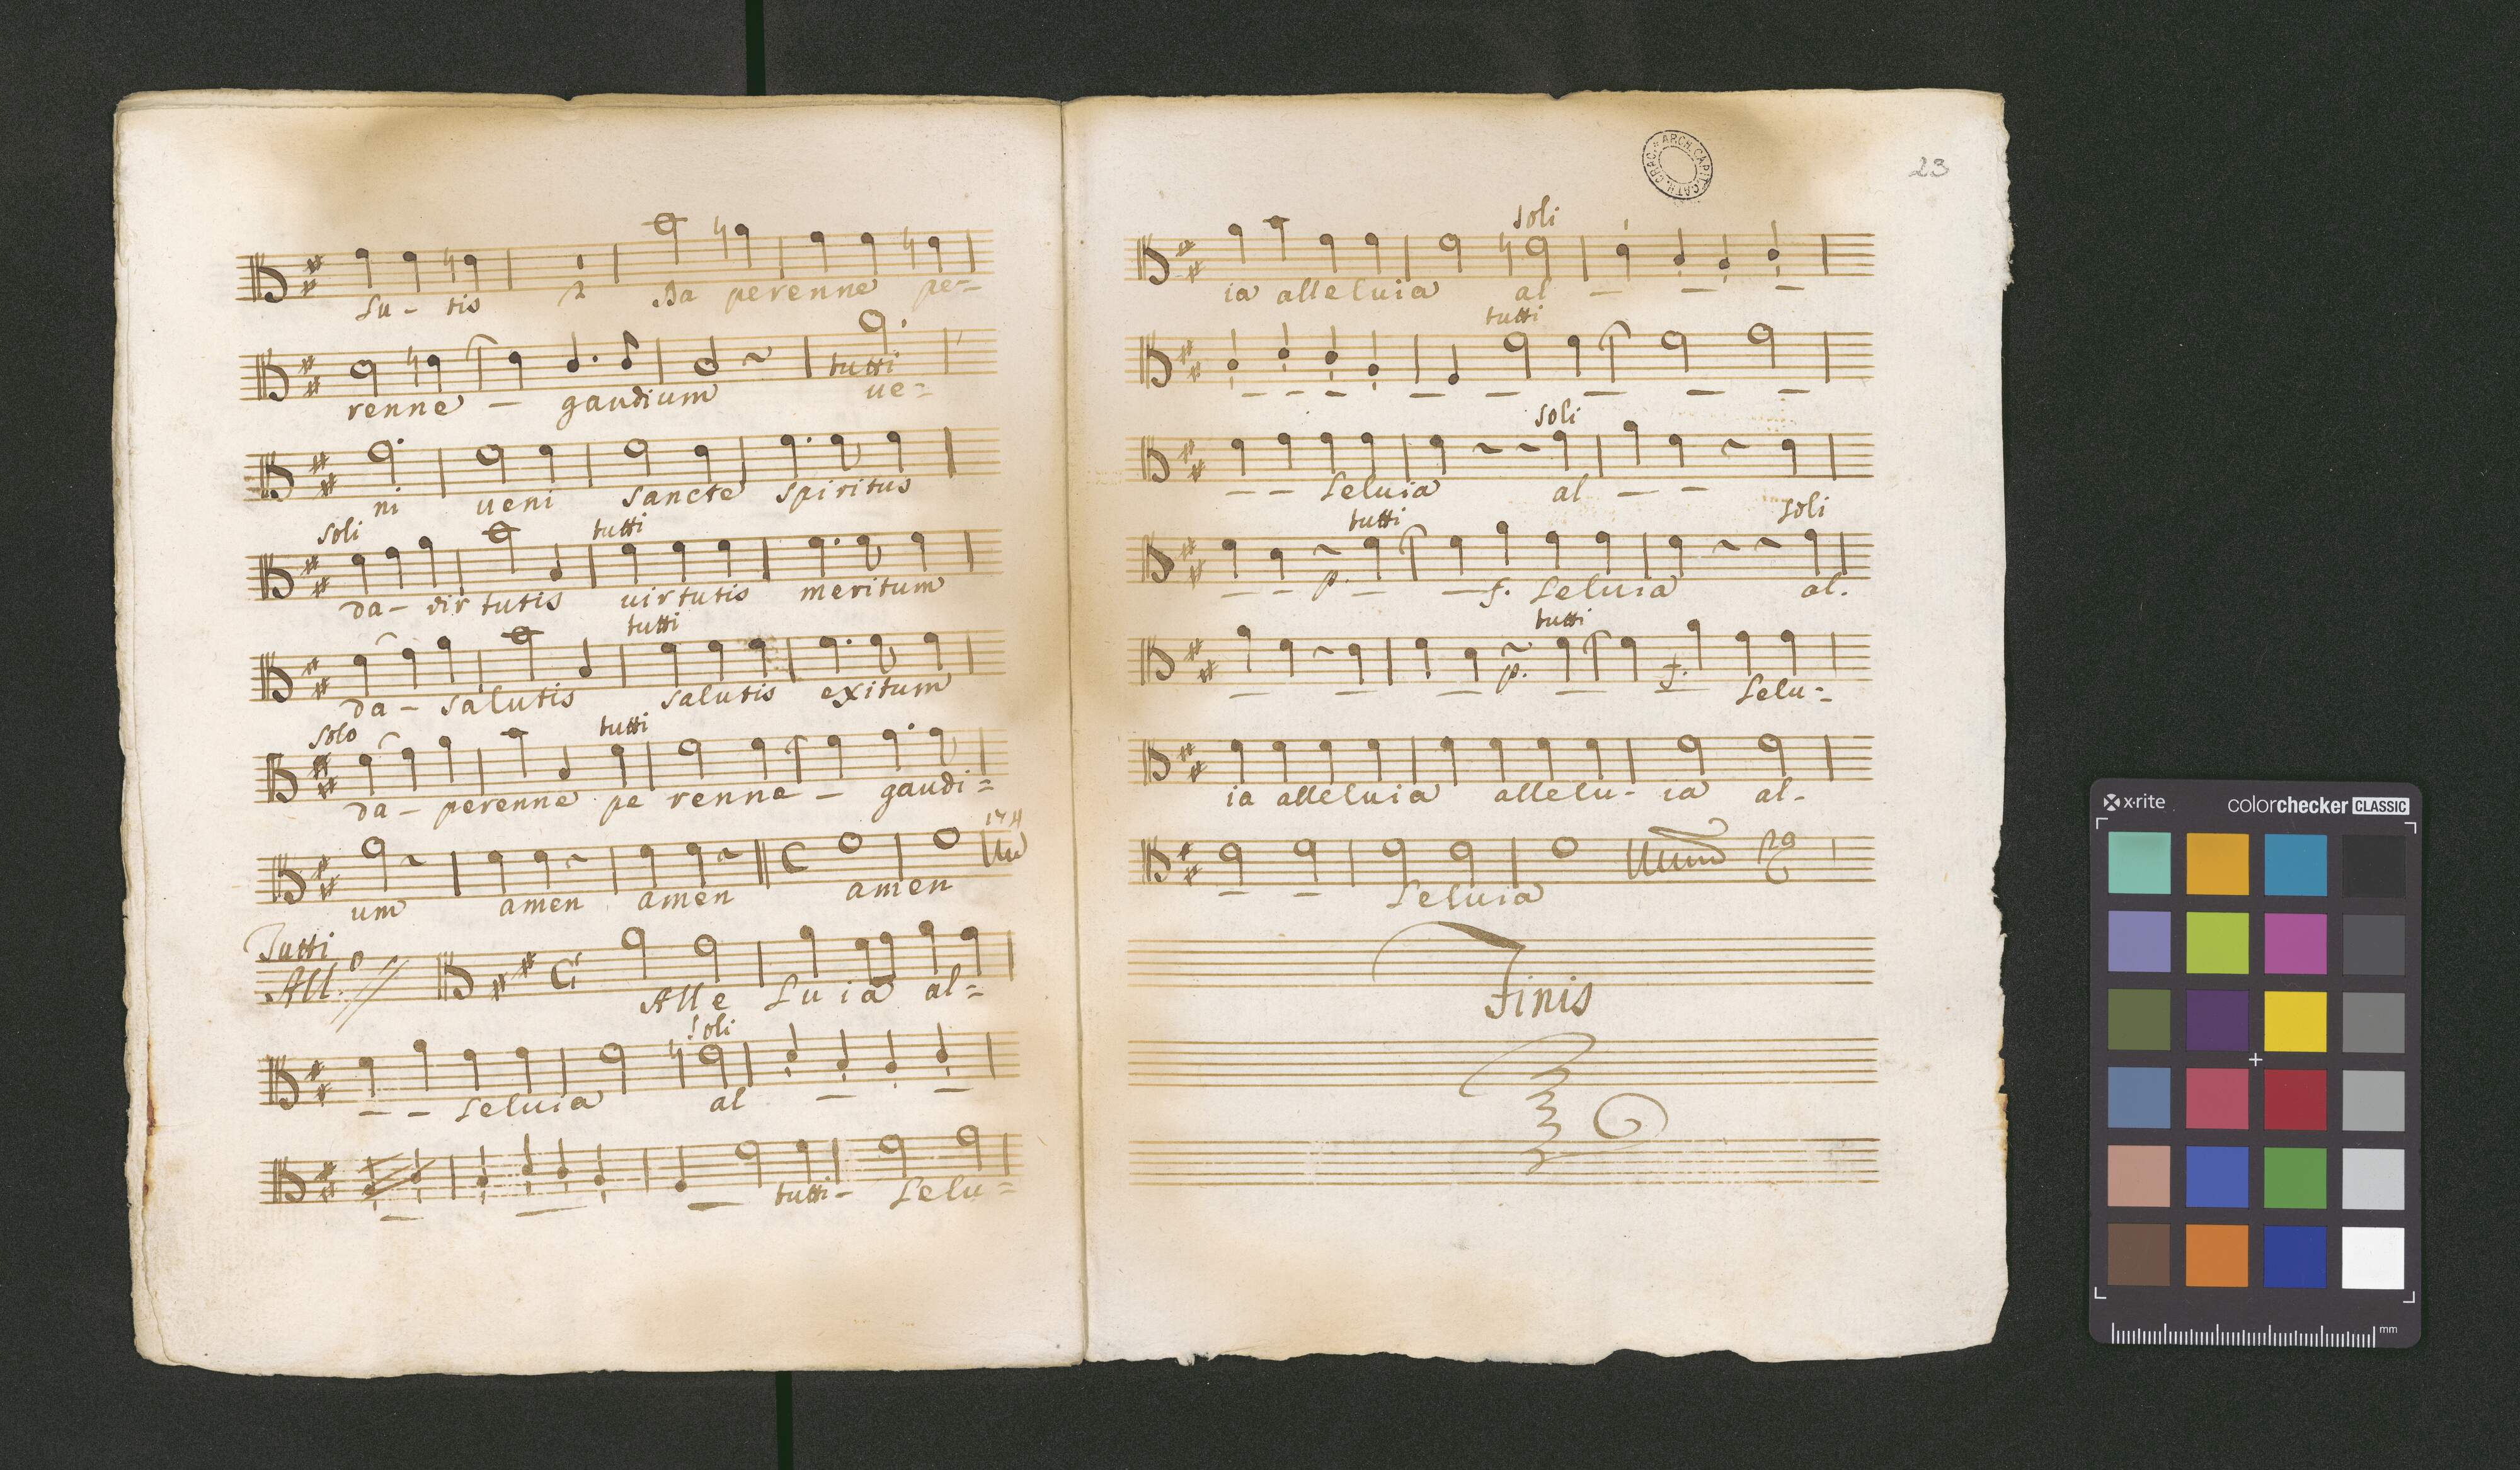 Lu - tis 2 Da perenne pe=
renne - gaudium tutti ue=
ni ueni Sancte Spiritus
Soli tutti
da - vir tutis uirtutis meritum
tutti
da - Salutis Salutis exitum
Solo tutti
da - perenne pe renne - gaudi=
um amen amen amen
Tutti
All.o Alle Lu ia al=
Soli
- - Leluia al - -
- - - tutti - Lelu=
ARCH. CAPIT. CATH. CRAC.
23
Soli
ia alleluia al - - -
tutti
- - - - - - - -
Soli
- - Leluia al - -
tutti Soli
- - p. - - f. Leluia al.
tutti
- - - p. - f. Lelu=
ia alleluia allelu- ia al-
- - Leluia
Finis
x-rite colorchecker CLASSIC
mm